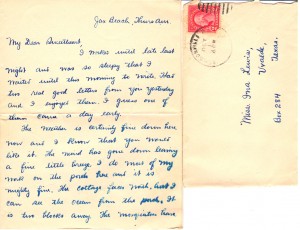 Gas Beach Thurs Aur.
My Dear Sweetheart,
I waited until late last
night and was so sleepy that I
waited until this morning to write. Had
two real good letters from you yesterday
and I enjoyed them. I guess one of
them came a day early.
The weather is certainly fine down here
now and I know that you would
like it. The wind has gone down leaving
a fine little breeze. I do most of my
work on the porch here and it is
mighty fine. The cottage faces West, but I
can see the ocean from the porch. It
is two blocks away. The mosquitoes have
Miss Ima Lewis,
Uvalde,
Texas.
Box 284